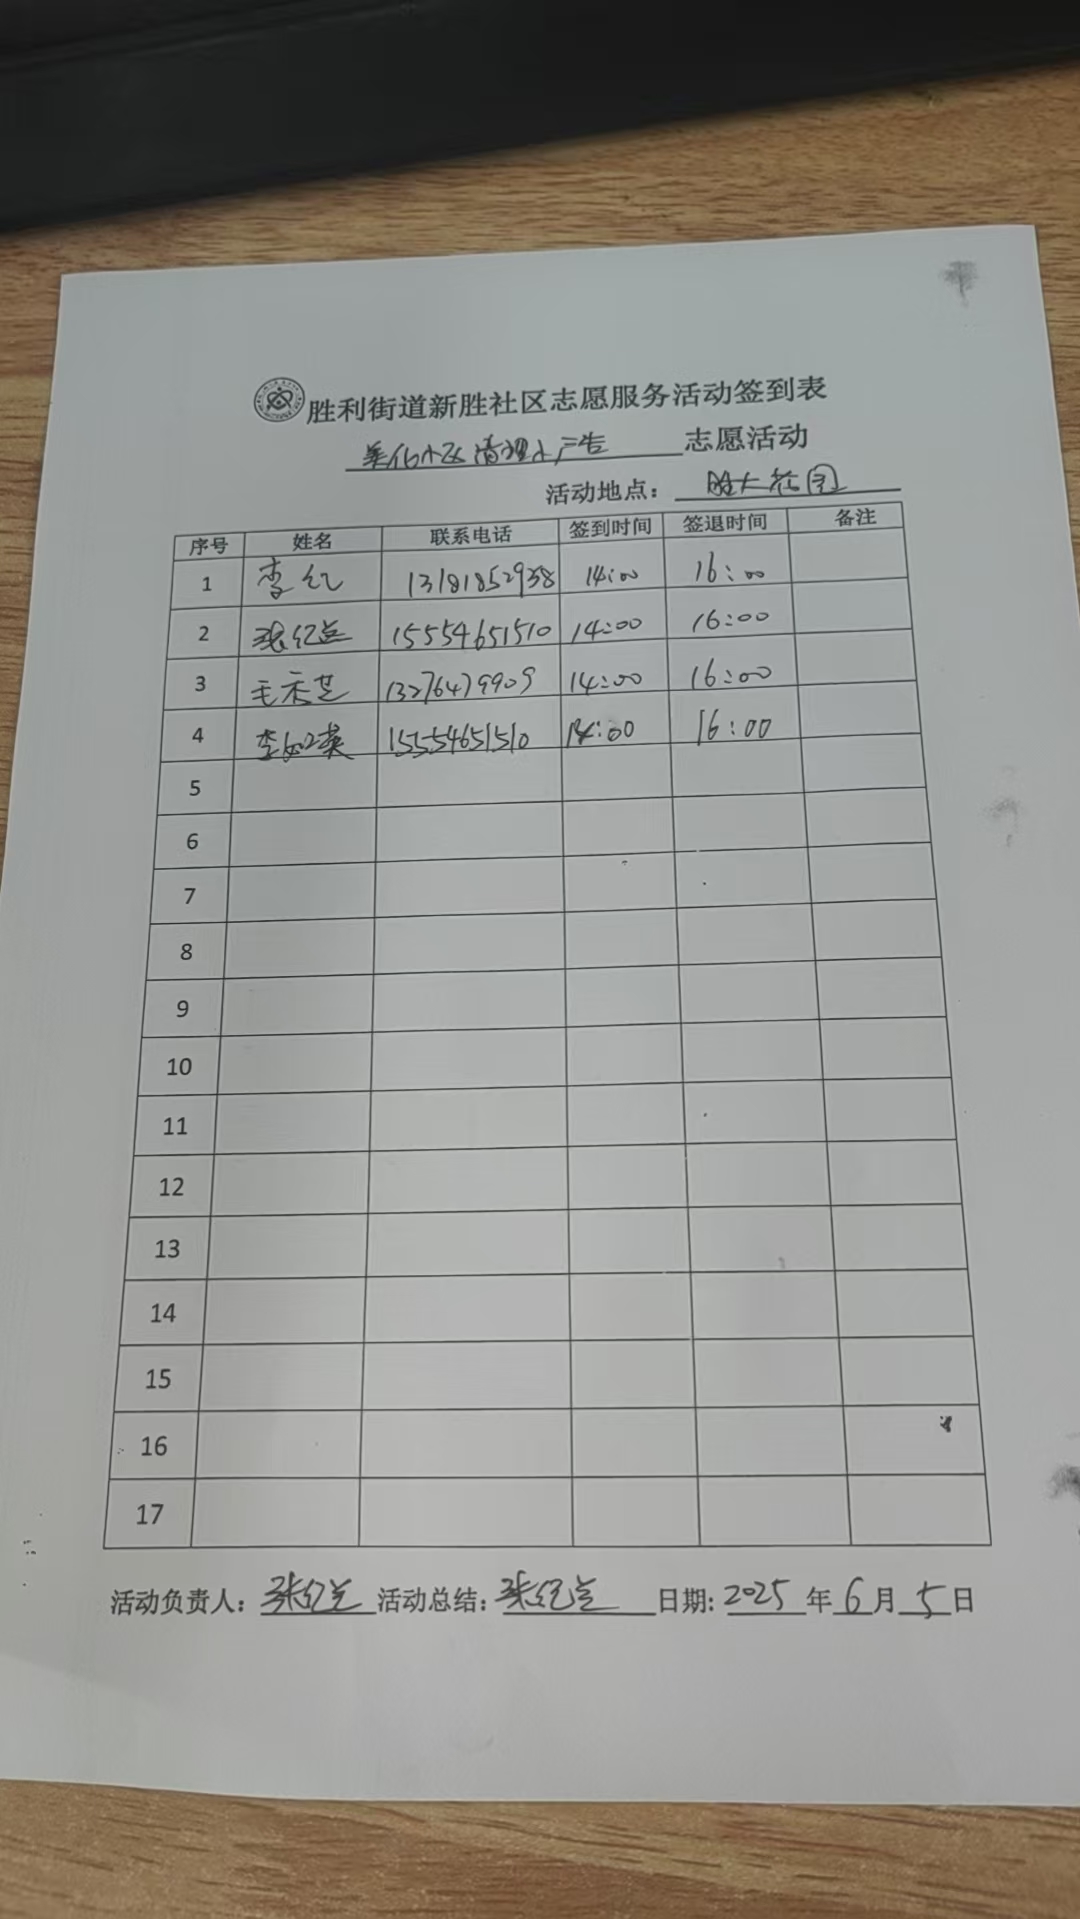 胜利街道新胜社区志愿服务活动签到表
美化小区清理小广告 志愿活动
活动地点：胜大花园
序号 姓名 联系电话 签到时间 签退时间 备注
1 李红 13181852938 14:00 16:00
2 张红兰 15554651510 14:00 16:00
3 王禾芝 13276479909 14:00 16:00
4 李如英 15554651510 14:00 16:00
5
6
7
8
9
10
11
12
13
14
15
16
17
活动负责人：张红兰 活动总结：张红兰 日期：2025年6月5日